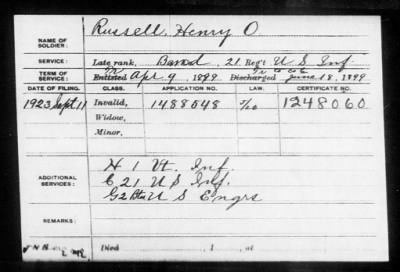 Russell, Henry O
NAME OF SOLDIER:
SERVICE: Late rank, Band, 21 Reg't U S Inf.
TERM OF SERVICE: Enlisted Apr 9, 1899 Discharged June 18, 1899
DATE OF FILING. CLASS. APPLICATION NO. LAW. CERTIFICATE NO.
1923 Sept 11 Invalid, 1488548 1248060
Widow,
Minor,
H 1 Vt. Inf.
ADDITIONAL SERVICES: C 21 U S Inf.
G 2 Btn U S Engrs
REMARKS:
Died , 1 , at